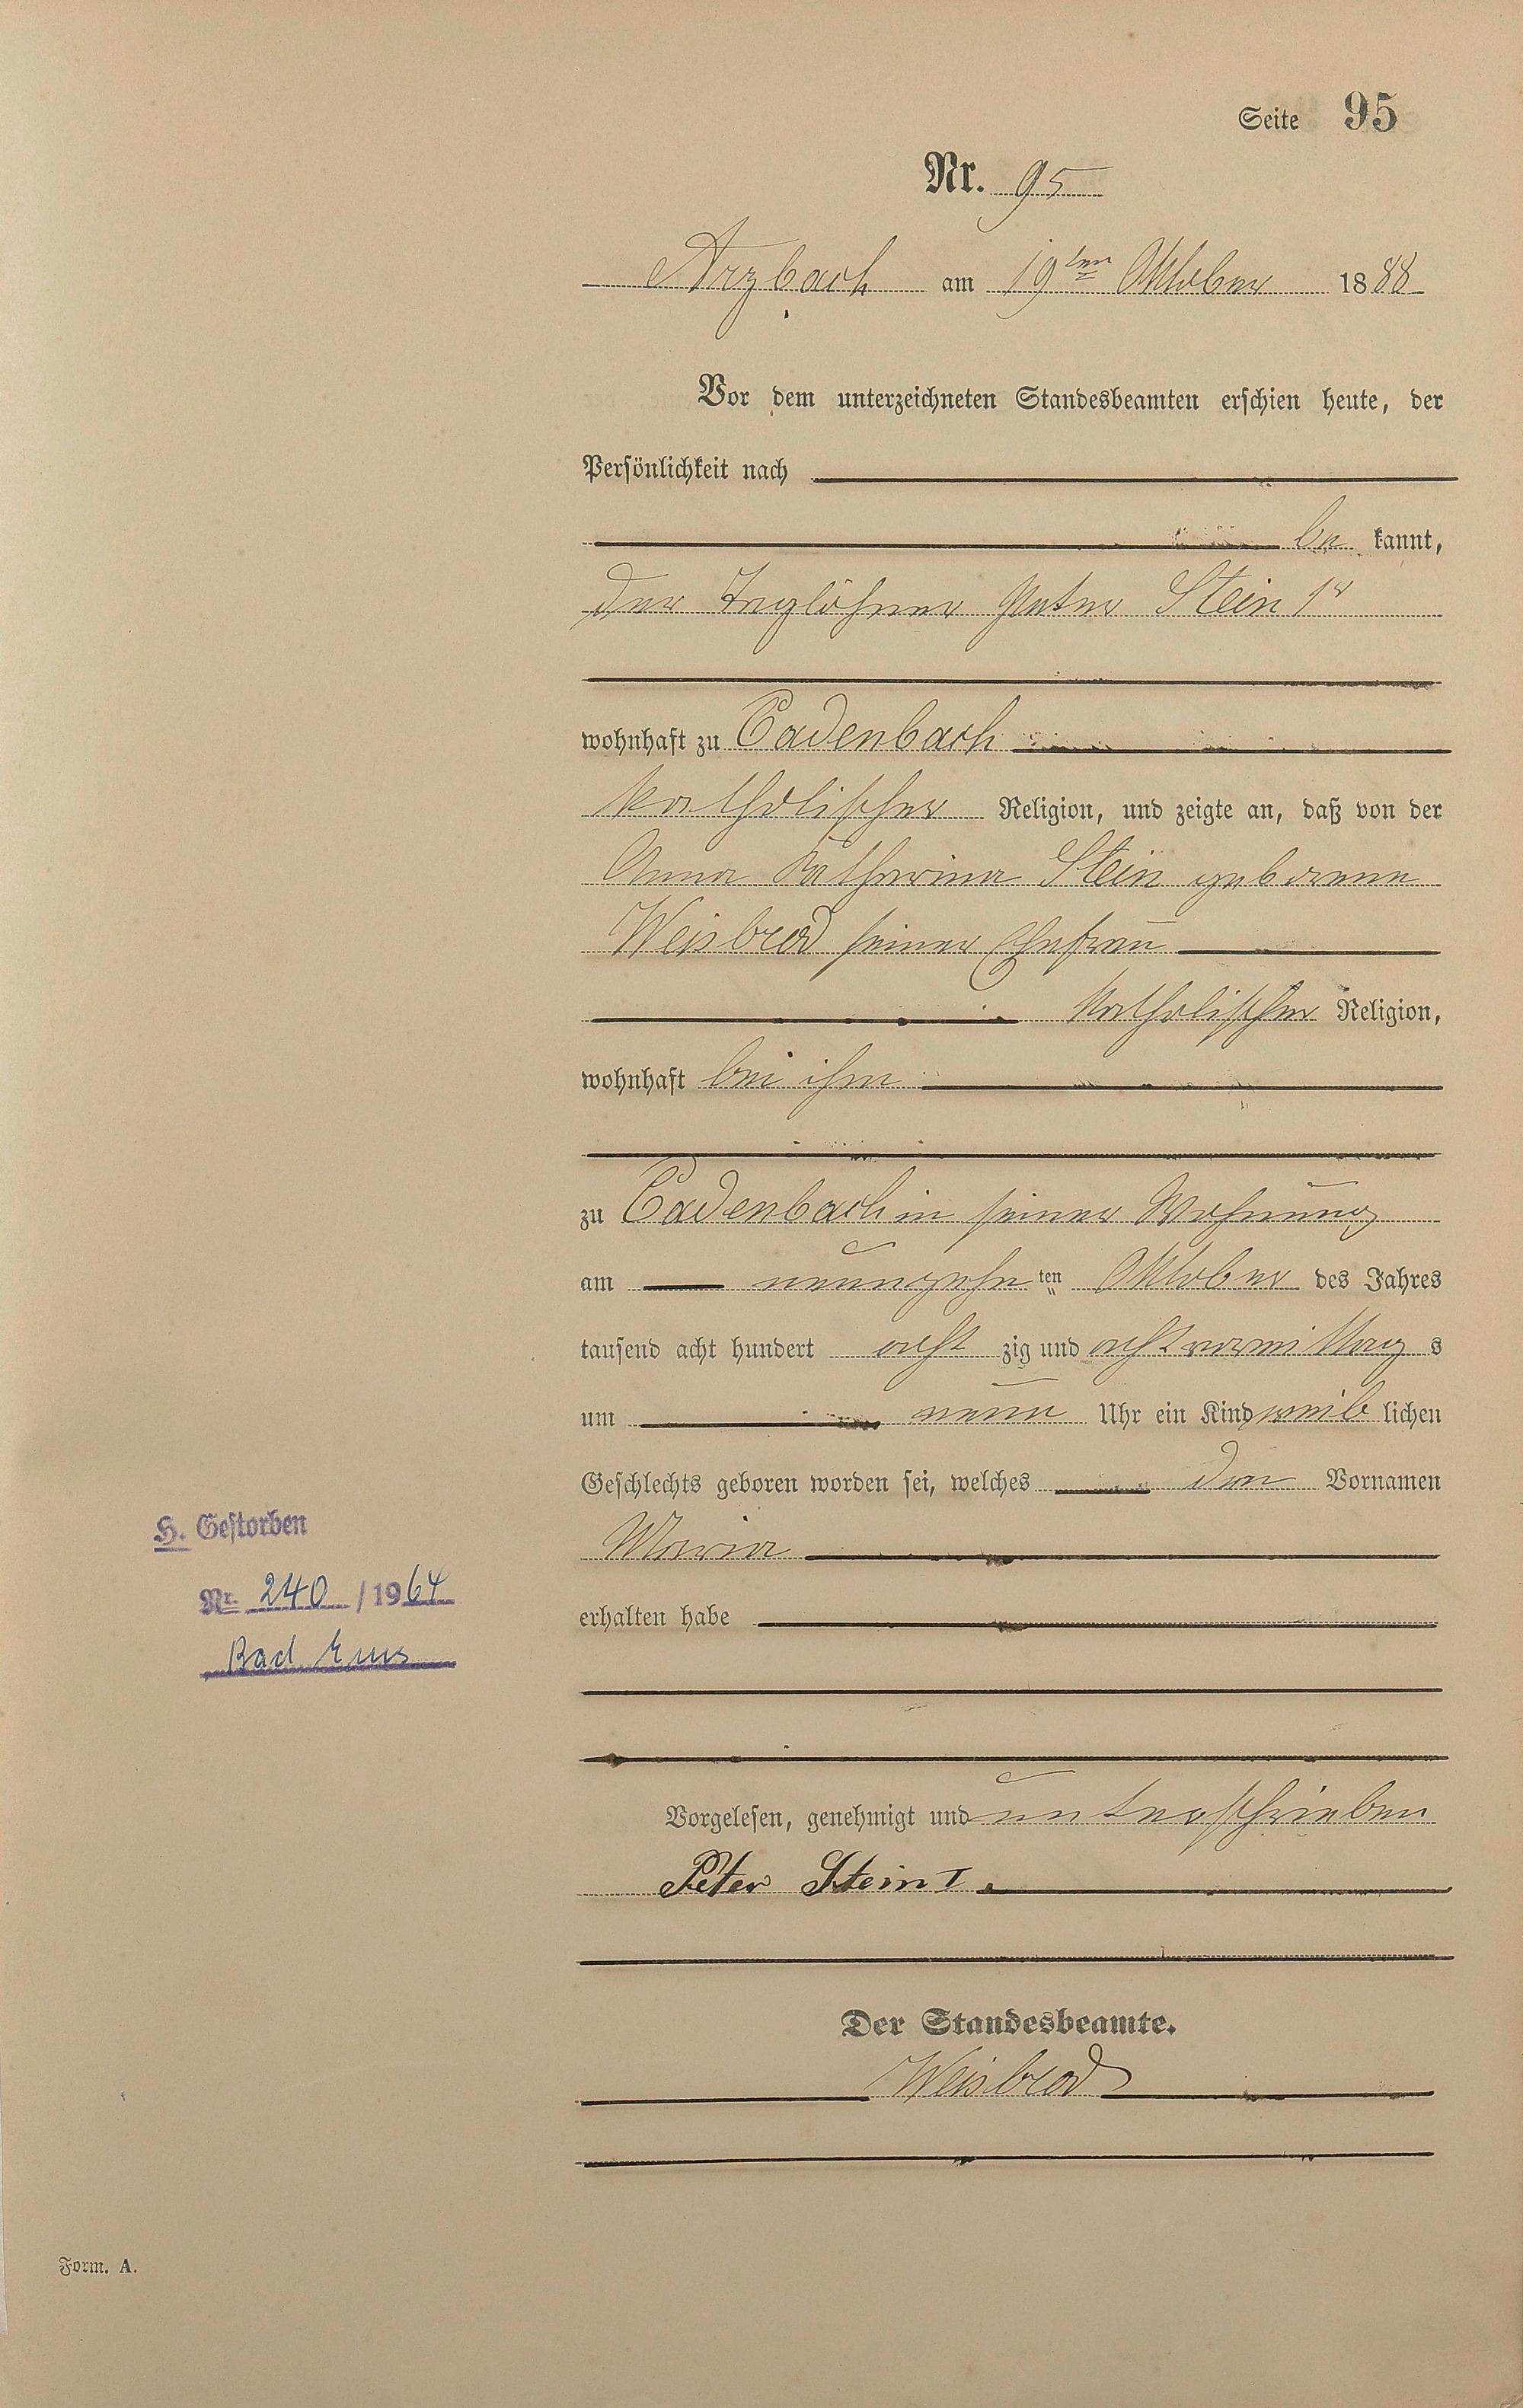 Seite 95
Nr. 95
Arzbach am 19ten Oktober 1888
Vor dem unterzeichneten Standesbeamten erschien heute, der
Persönlichkeit nach
be kannt,
der Taglöhner Peter Stein 1r
wohnhaft zu Cadenbach
katholischer Religion, und zeigte an, daß von der
Anna Katharina Stein geborene
Weisbrod seiner Ehefrau
katholischer Religion,
wohnhaft bei ihm
zu Cadenbach in seiner Wohnung
am neunzehn ten Oktober des Jahres
tausend acht hundert acht zig und acht vormittag s
um neun Uhr ein Kind weib lichen
Geschlechts geboren worden sei, welches den Vornamen
H. Gestorben
Maria
Nr. 240 / 1964
erhalten habe
Bad Ems
Vorgelesen, genehmigt und unterschrieben
Peter Stein I.
Der Standesbeamte.
Weisbrod
Form. A.